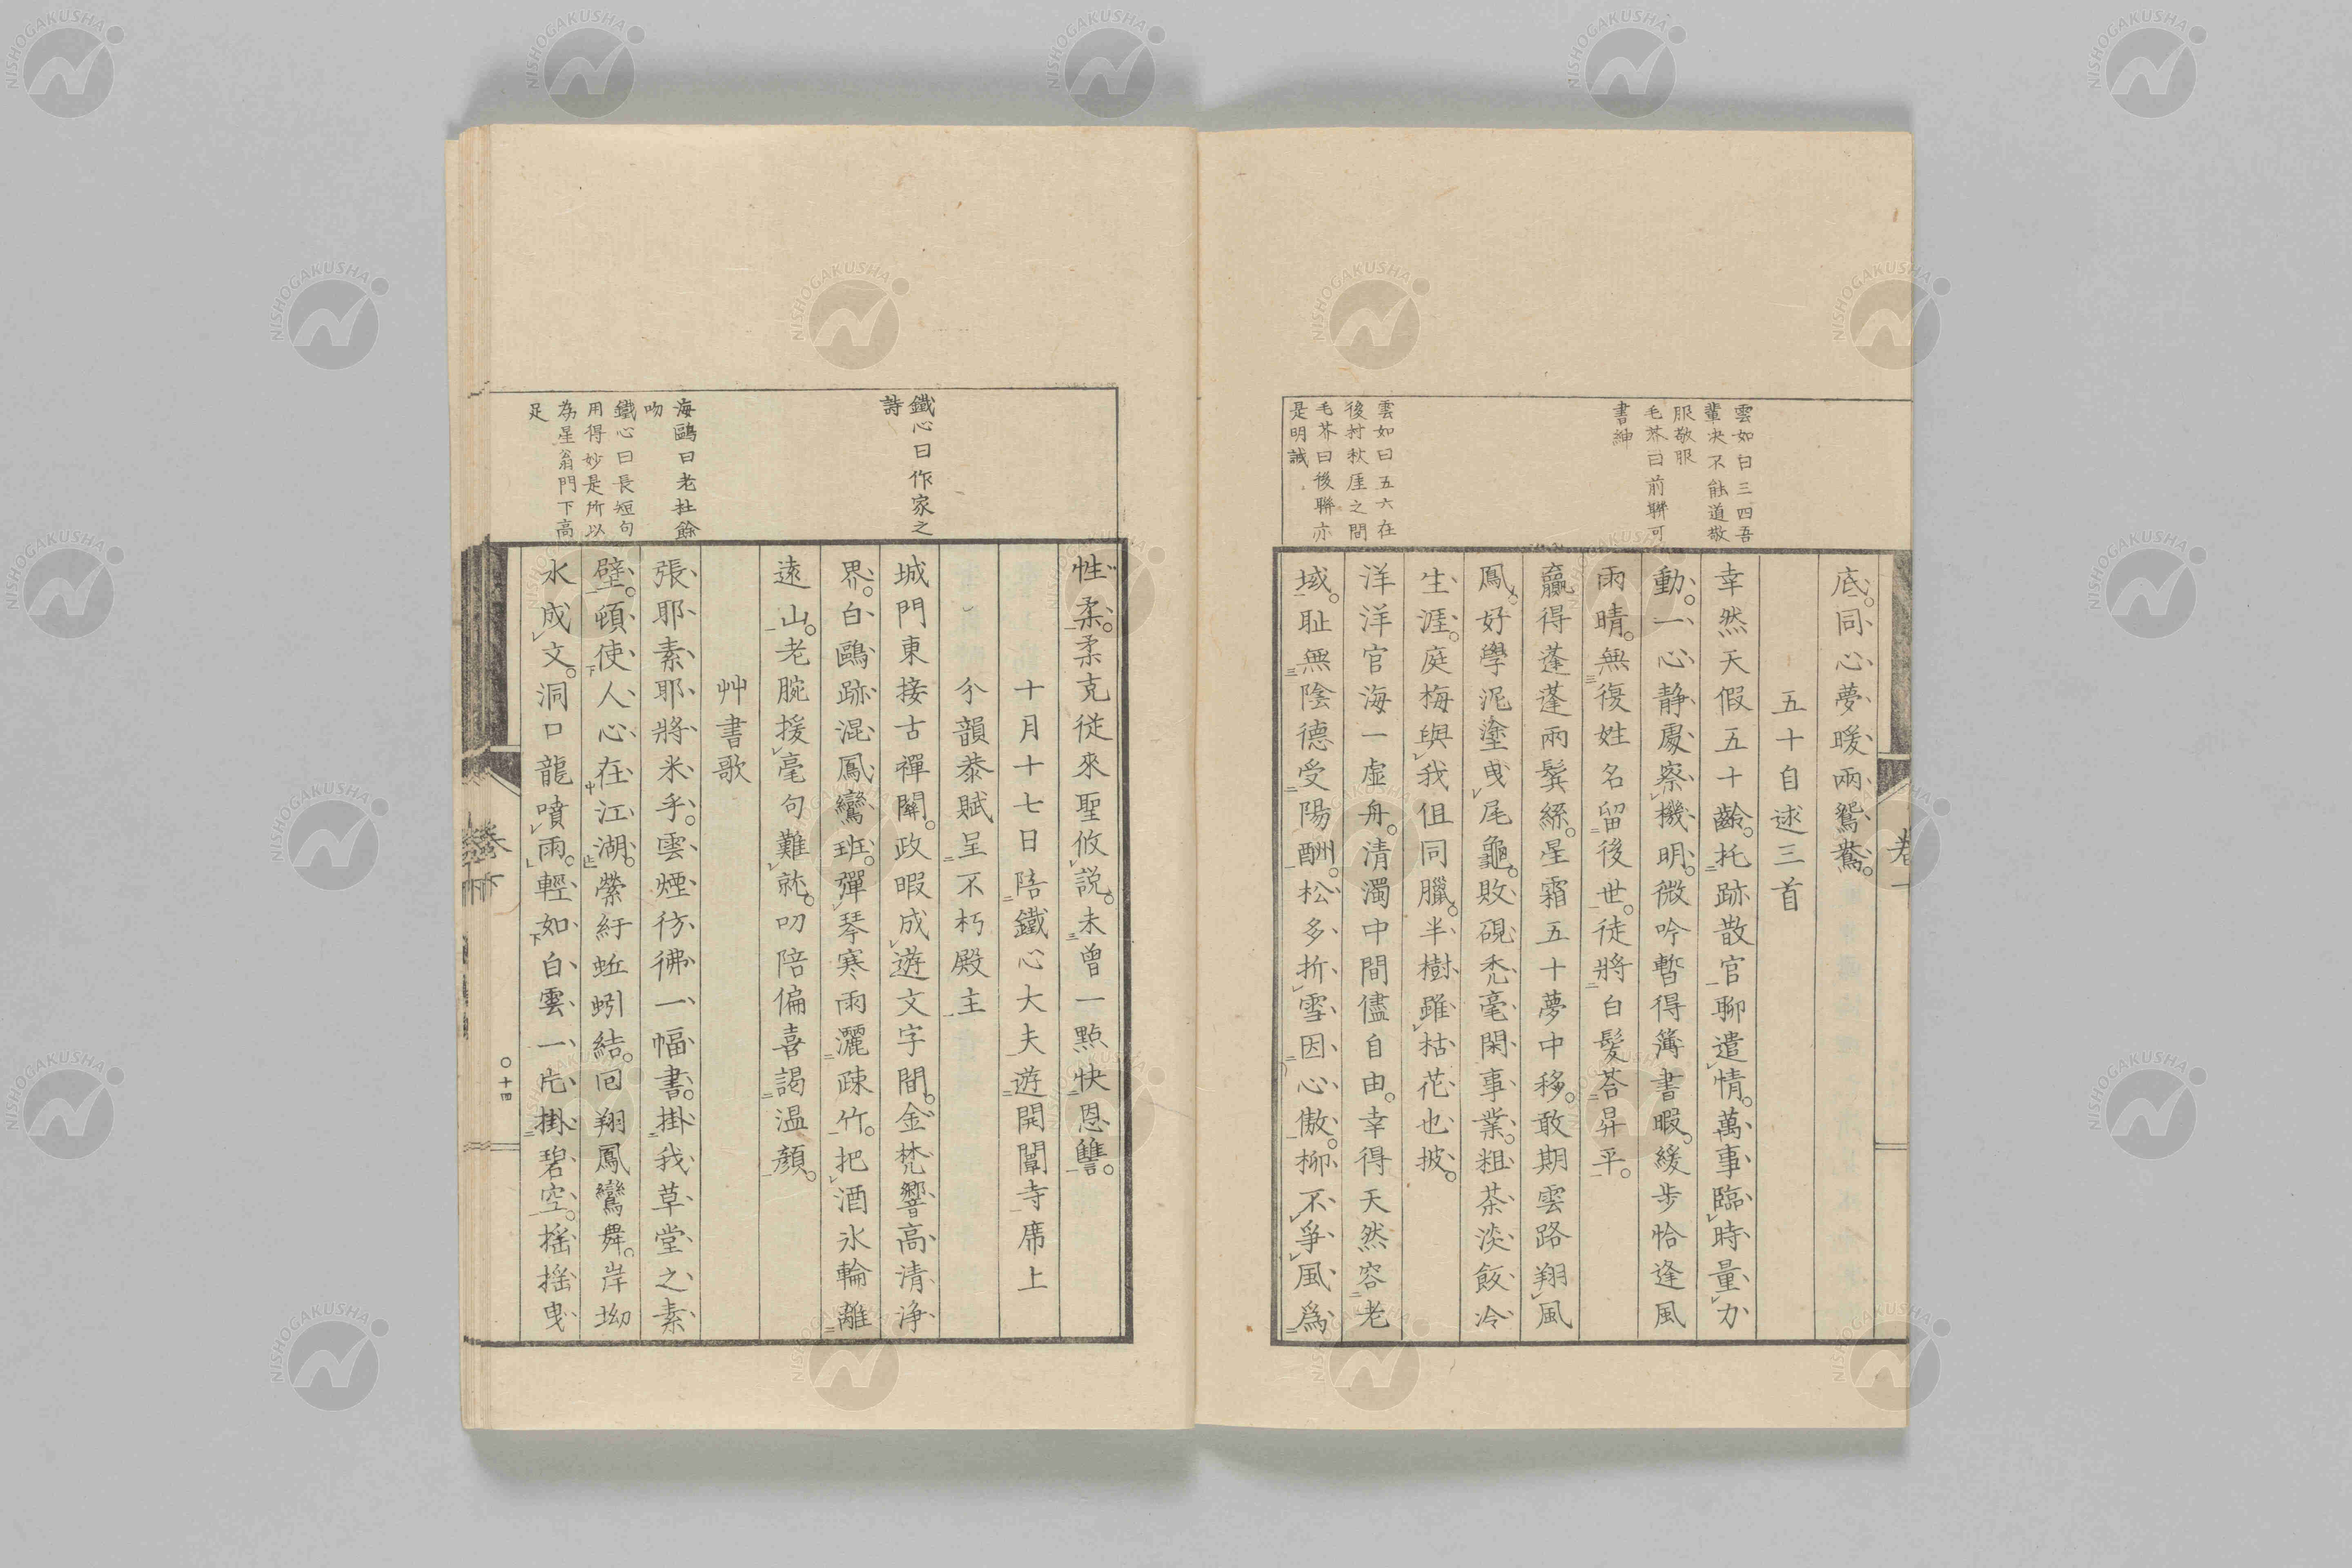 底同心夢暖兩鴛鴦
五十自述三首
雲如曰三四吾
輩決不能道敬
服敬服
毛芥曰前聯可
書紳
幸然天假五十齡托跡散官聊遣情萬事臨時量力
動一心靜處察機明微吟暫得簿書暇緩步恰逢風
雨晴無復姓名留後世徒將白髮荅昇平
贏得蓬蓬兩鬢絲星霜五十夢中移敢期雲路翔風
鳳好學泥塗曳尾龜敗硯禿毫閑事業粗茶淡飯冷
生涯庭梅與我伹同臘半樹雖枯花也披
雲如曰五六在
後村秋厓之間
毛芥曰後聯亦
是明誠
洋洋官海一虛舟清濁中間儘自由幸得天然容老
域耻無陰德受陽酬松多折雪因心傲柳不爭風爲
性柔柔克從來聖攸說未曾一點快恩讐
十月十七日陪鐵心大夫遊開闡寺席上
分韻恭賦呈不朽殿主
鐵心曰作家之
詩
城門東接古禪關政暇成遊文字間金梵響高清淨
界白鷗跡混鳳鸞班彈琴寒雨灑疎竹把酒氷輪離
遠山老腕援毫句難就叨陪偏喜謁温顏
艸書歌
海鷗曰老杜餘
吻
鐵心曰長短句
用得妙是所以
為星翁門下高
足
張耶素耶將米乎雲煙彷彿一幅書掛我草堂之素
壁頓使人心在江湖縈紆蚯蚓結回翔鳳鸞舞岸坳
水成文洞口龍噴雨輕如白雲一片掛碧空搖搖曳
〇十四